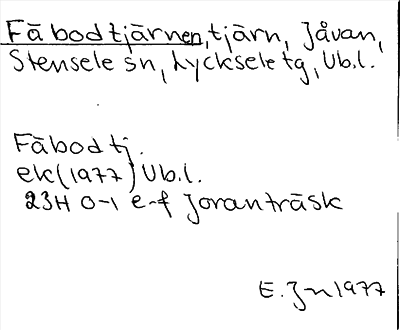 Fäbodtjärnen, tjärn, Jåvan,
Stensele sn, Lycksele tg, Vb.l.
Fäbodtj.
ek (1977) Vb.l.
23H 0-1 e-f Joranträsk
E. Jn 1977